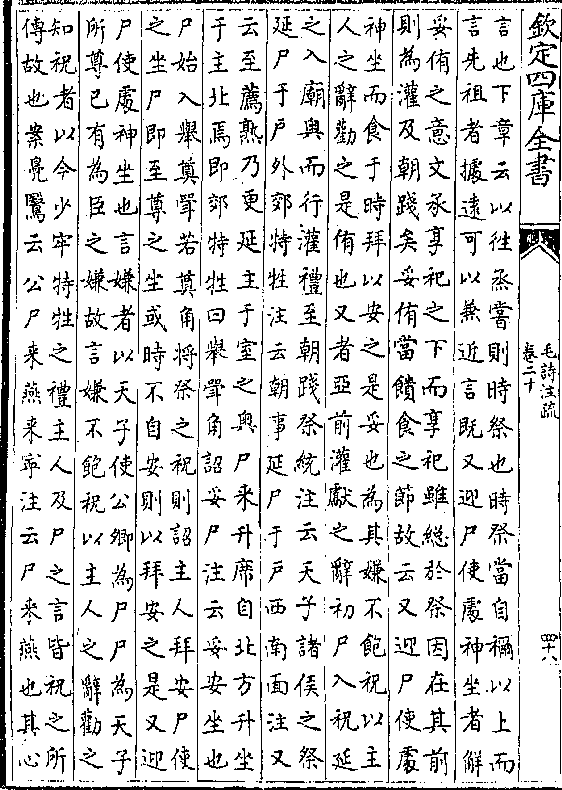 欽定四庫全書
毛詩注疏
卷二十
四十八
言也下章云以徃烝嘗則時祭也時祭當自禰以上而
言先祖者據逺可以兼近言既又迎尸使處神坐者解
妥侑之意文承享祀之下而享祀雖總於祭因在其前
則為灌及朝踐矣妥侑當饋食之節故云又迎尸使處
神坐而食于時拜以安之是妥也為其嫌不飽祝以主
人之辭勸之是侑也又者亞前灌獻之辭初尸入祝延
之入廟奥而行灌禮至朝踐祭統注云天子諸侯之祭
延尸于戸外郊特牲注云朝事延尸于戸西南面注又
云至薦熟乃更延主于室之奥尸来升席自北方升坐
于主北焉即郊特牲曰舉斝角詔妥尸注云妥安坐也
尸始入舉奠斝若奠角将祭之祝則詔主人拜安尸使
之坐尸即至尊之坐或時不自安則以拜安之是又迎
尸使處神坐也言嫌者以天子使公卿為尸尸為天子
所尊已有為臣之嫌故言嫌不飽祝以主人之辭勸之
知祝者以今少牢特牲之禮主人及尸之言皆祝之所
傳故也案鳧鷖云公尸来燕来寧注云尸来燕也其心